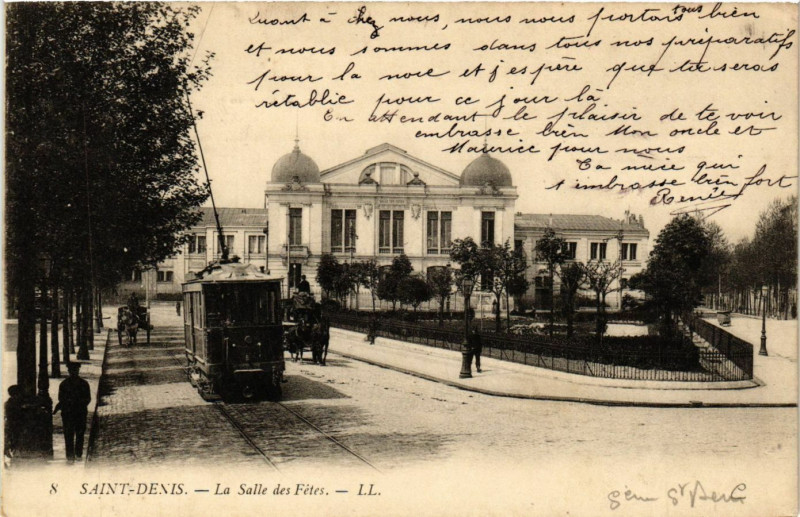 Quant à chez nous, nous nous portons tous bien
et nous sommes dans tous nos préparatifs
pour la noce et j'espère que tu seras
rétablie pour ce jour là
En attendant le plaisir de te voir
embrasse bien Mon oncle et
Maurice pour nous
Ta nièce qui
t'embrasse bien fort
Renée
8 SAINT-DENIS. — La Salle des Fêtes. — LL.